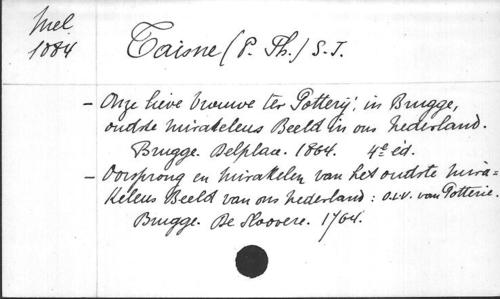 Mel.
1084
Taisne (P. Th.) S.J.
- Onze lieve Vrouwe ter Potterij, in Brugge,
oudste mirakeleus Beeld in ons Nederland.
Brugge. Delplace. 1864. 4e éd.
- Oorsprong en mirakelen van het oudste mira-
keleus Beeld van ons Nederland: O.L.V. van Potterie.
Brugge. De Sloovere. 1764.